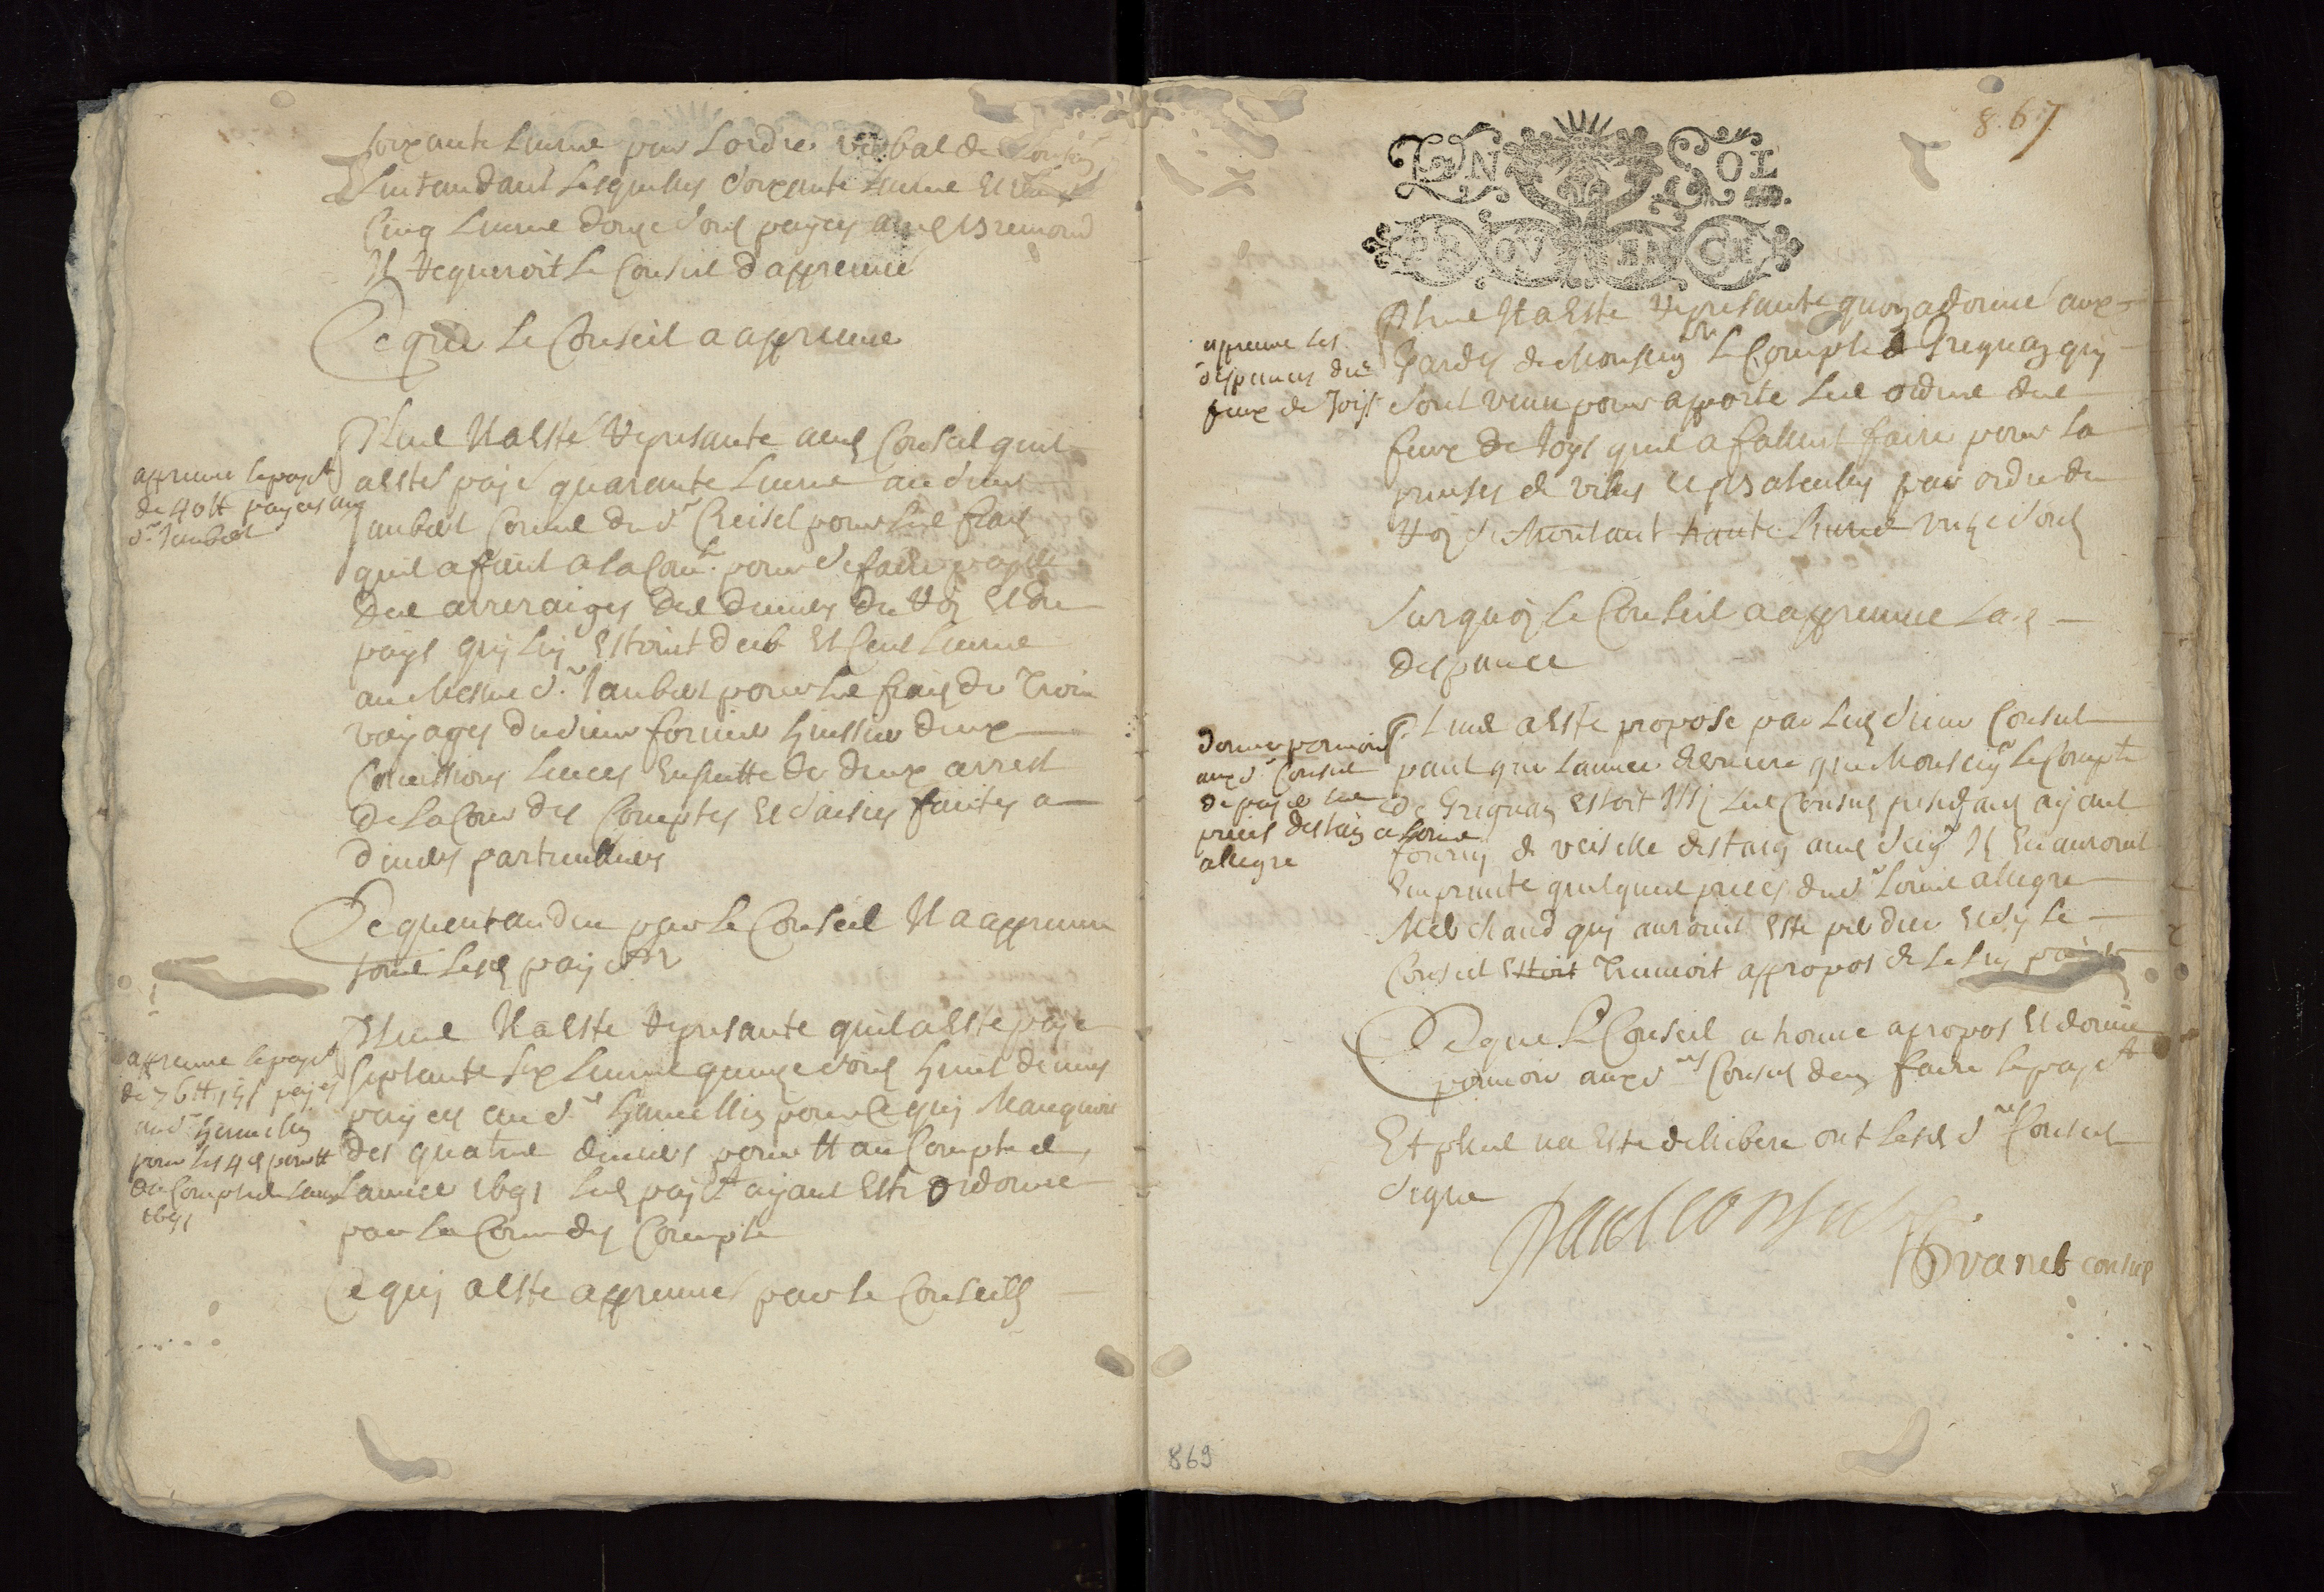 soixante livre par lordre verbal de Monsieur
Lintandant lesquelles soixante livre et vingt
Cinq livre douze sous payes aud Bremond
Il Requeroit le Conseil dapreuue
Ceque le Conseil a appreuue
appreuue le payt
de 40 tt payes au
sr Jaubert
Plus Il a este Represante aud Conseil quil
a este paye quarante livre au sieur
Jaubert Comme du sr Creisel pour les frais
quil a fait a la Cour pour se faire payer
des arreraiges des deniers du Roy et du
pays quy luy estoint deub et Cent livre
au Mesme sr Jaubert pour les frais de Trois
voyages du sieur fornier huissier deux
Comissions en suitte de deux arrest
de la Cour des Comptes et saisies faites a
divers particulliers
Ce quentandeu par le Conseil Il a appreuue
tous lesd payemt
appreuue le payt
de 76 tt 15 s payes
au sr
pour les 4 d pour tt
du Compte de lannee
1691
Plus Il a este Represante quil a este paye
septante six livre quinze sous huit deniers
payes au sr pour ce quy Manquoit
des quatre deniers pour tt au Compte de
Lannee 1691 led payt ayant este ordonne
par la Cour des Compte
Ce quy a este appreuue par le Conseil
867
GN SOL
PROVENCE
appreuue les
despances des
feux de Joye
Plus Il a este Represante quon a donne aux
Gardes de Monseigr le Compte de Grignan quy
sont venu pour apporte les ordres des
feux de Joye quil a fallut faire pour la
prinses de viles et Batailles par ordre du
Roy se Montant trante livres unze sous
Sur quoy le Conseil a appreuue la
despance
donne pouvoir
aux srs Consuls
de payer les
pieces destain a Louis
allegre
Plus a este propose par led sieur Consul
paul que lannee derniere que Monseigr le Compte
de Grignan estoit Issy les Consuls ayant
forny de veiselle destaing aud seigr Il en auroint
Emprunte quelques pieces du sr Louis allegre
Merchand quy auroint este perdeu et sy le
Conseil estoit Treuvoit appropos de le luy payer
Ceque le Conseil a trouve apropos et donne
pouvoir auxd srs Consuls den faire le payt
Et plus na este delibere ont lesd srs Consuls
signe
paul consul
Bvanet consul
869